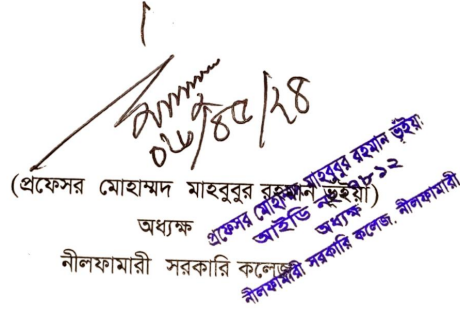 (প্রফেসর মোহাম্মদ মাহবুবুর রহমান ভূঁইয়া)
অধ্যক্ষ
নীলফামারী সরকারি কলেজ
প্রফেসর মোহাম্মদ মাহবুবুর রহমান ভূঁইয়া
আইডি নং
অধ্যক্ষ
নীলফামারী সরকারি কলেজ, নীলফামারী